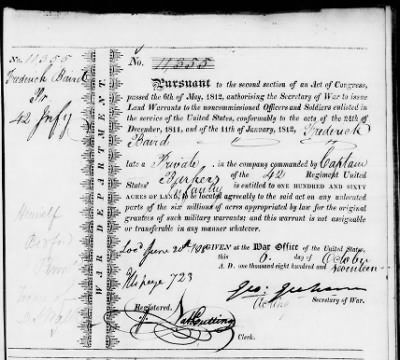 No. 11355
Frederick Baird
Pr
42 Infy
Himself
Bedford
WAR DEPARTMENT
No. 11355
Pursuant to the second section of an Act of Congress,
passed the 6th of May, 1812, authorising the Secretary of War to issue
Land Warrants to the noncommissioned Officers and Soldiers enlisted in
the service of the United States, conformably to the acts of the 24th of
December, 1811, and of the 11th of January, 1812, Frederick
Baird
late a Private in the company commanded by Captain
Barkers of the 42 Regiment United
States' Infantry is entitled to ONE HUNDRED AND SIXTY
ACRES OF LAND, to be located agreeably to the said act on any unlocated
parts of the six millions of acres appropriated by law for the original
grantees of such military warrants; and this warrant is not assignable
or transferable in any manner whatever.
GIVEN at the War Office of the United States,
this 6. day of October
A. D. one thousand eight hundred and seventeen
page 723
Geo: Graham
Acting Secretary of War.
Registered.
Nat Cutting
Clerk.